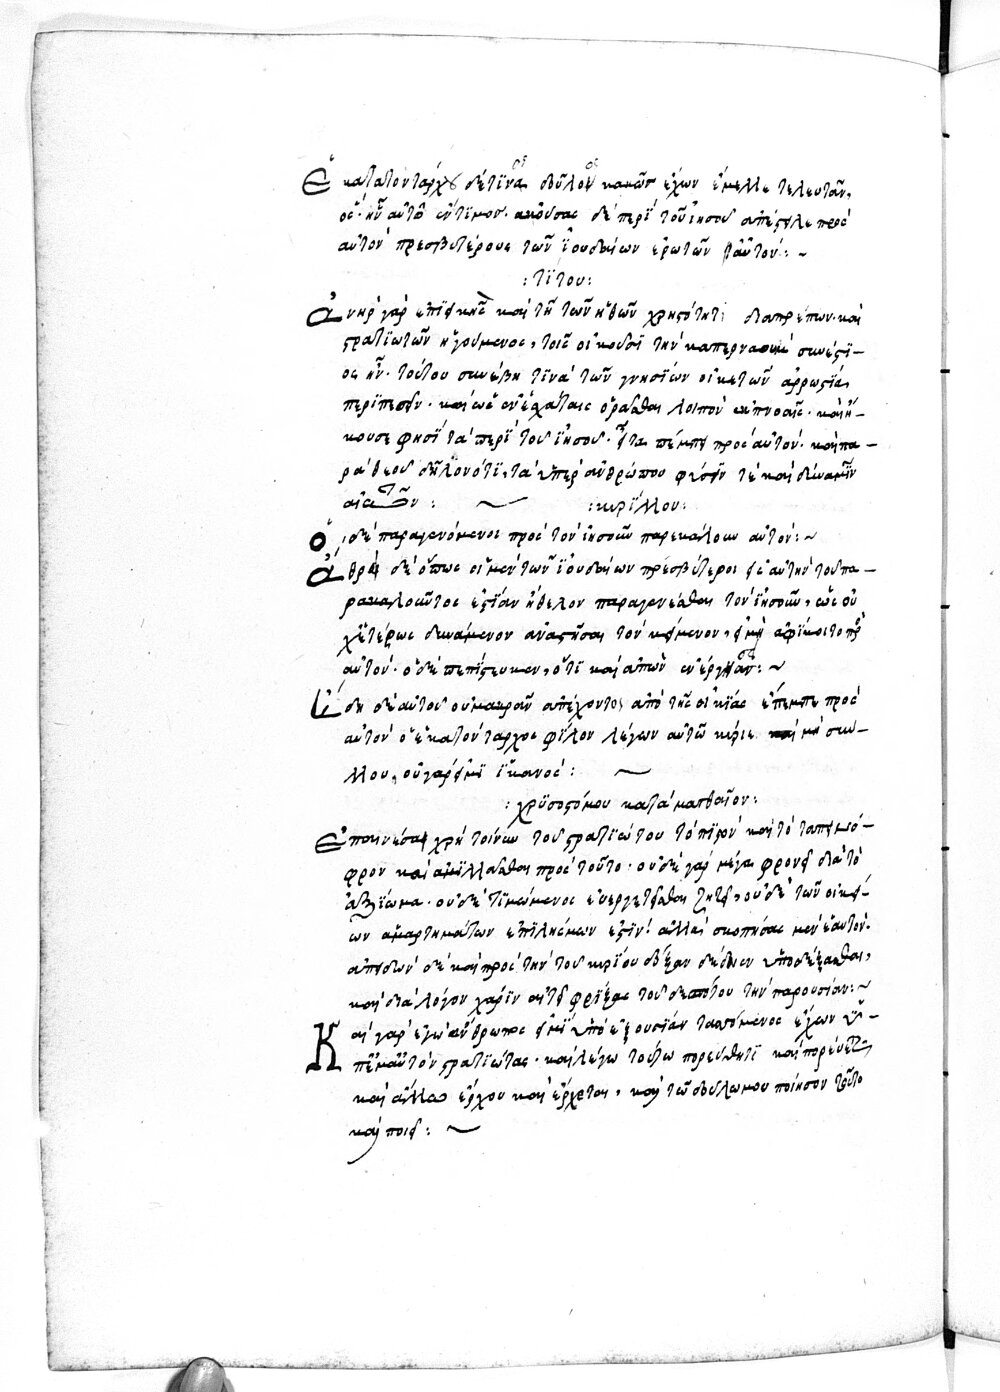 Ἑκατατοντάρχου δέ τινος δοῦλος κακῶς ἔχων ἔμελλε τελευτᾶν,
ὃς ἦν αὐτῶ ἔντιμος. ἀκούσας δὲ περὶ τοῦ ἰησοῦ ἀπέστειλε πρὸς
αὐτὸν πρεσβυτέρους τῶν ἰουδαίων ἐρωτῶν αὐτόν: ~
: τίτου:
Ἀνὴρ γὰρ ἐπιεικὴς καὶ τῆ τῶν ἠθῶν χρηστότητι διαπρέπων. καὶ
στρατιωτῶν ἡγούμενος, τοῖς οἰκοῦσι τὴν καπερναοὺμ συνέστι–
ος ἦν. τούτου συνέβη τινὰ τῶν γνησίων οἰκετῶν ἀρρωστία
περιπεσεῖν. καὶ ὡς ἐν ἐσχάταις ὁρᾶσθαι λοιπὸν ἐκπνοαῖς. καὶ ἤ–
κουσε φησὶ τὰ περὶ τοῦ ἰησοῦ. εἶτα πέμπει πρὸς αὐτόν. καὶ πα–
ρὰ θεοῦ δηλονότι, τὰ ὑπὲρ ἀνθρώπου φύσιν τὲ καὶ δύναμιν
αἰτῶν : ~ :κυρίλλου:
Ὁι δὲ παραγενόμενοι πρὸς τὸν ἰησοῦν παρεκάλουν αὐτόν: ~
Ἄθρει δὲ ὅπως οἱ μὲν τῶν ἰουδαίων πρεσβύτεροι ἐς αὐτὴν τοῦ πα–
ρακαλοῦντος ἑστίαν ἤθελον παραγενέσθαι τὸν ἰησοῦν, ὡς οὐ
χ' ἑτέρως δυνάμενον ἀναστῆσαι τὸν κείμενον, εἰ μὴ ἀφίκοιτο πρὸς
αὐτόν. ὁ δὲ πεπίστευκεν, ὅτι καὶ ἀπὼν ἐνεργήσει: ~
Ἤδη δὲ αὐτοῦ οὐ μακρὰν ἀπέχοντος ἀπὸ τῆς οἰκίας ἔπεμπε πρὸς
αὐτὸν ὁ ἑκατόνταρχος φίλον λέγων αὐτῶ κύριε μὴ σκύ–
λλου, οὐ γάρ εἰμι ἱκανός: ~
: χρυσοστόμου κατὰ ματθαῖον:
Ἐπαινέσαι χρὴ τοίνυν τοῦ στρατιώτου τὸ πιστὸν καὶ τὸ ταπεινό–
φρον καὶ ἁμιλλᾶσθαι πρὸς τοῦτο. οὐδὲ γὰρ μέγα φρονεῖ διὰ τὸ
ἀξίωμα. οὐδὲ τιμώμενος εὐεργετεῖσθαι ζητεῖ, οὐδὲ τῶν οἰκεί–
ων ἁμαρτημάτων ἐπιλήσμων ἐστίν! ἀλλὰ σκοπήσας μὲν ἑαυτόν.
ἀπιδὼν δὲ καὶ πρὸς τὴν τοῦ κυρίου δόξαν δέδιεν ὑποδέξασθαι,
καὶ διαλόγον χάριν αἰτεῖ φρίξας τοῦ δεσπότου τὴν παρουσίαν: ~
Καὶ γὰρ ἐγὼ ἄνθρωπος εἰμὶ ὑπὸ ἐξουσίαν ταττόμενος ἔχων ὑ–
π' ἐμαυτὸν στρατιώτας. καὶ λέγω τούτω πορεύθητι καὶ πορεύεται
καὶ ἄλλω ἔρχου καὶ ἔρχεται, καὶ τῶ δούλω μου ποίησον τοῦτο
καὶ ποιεῖ: ~